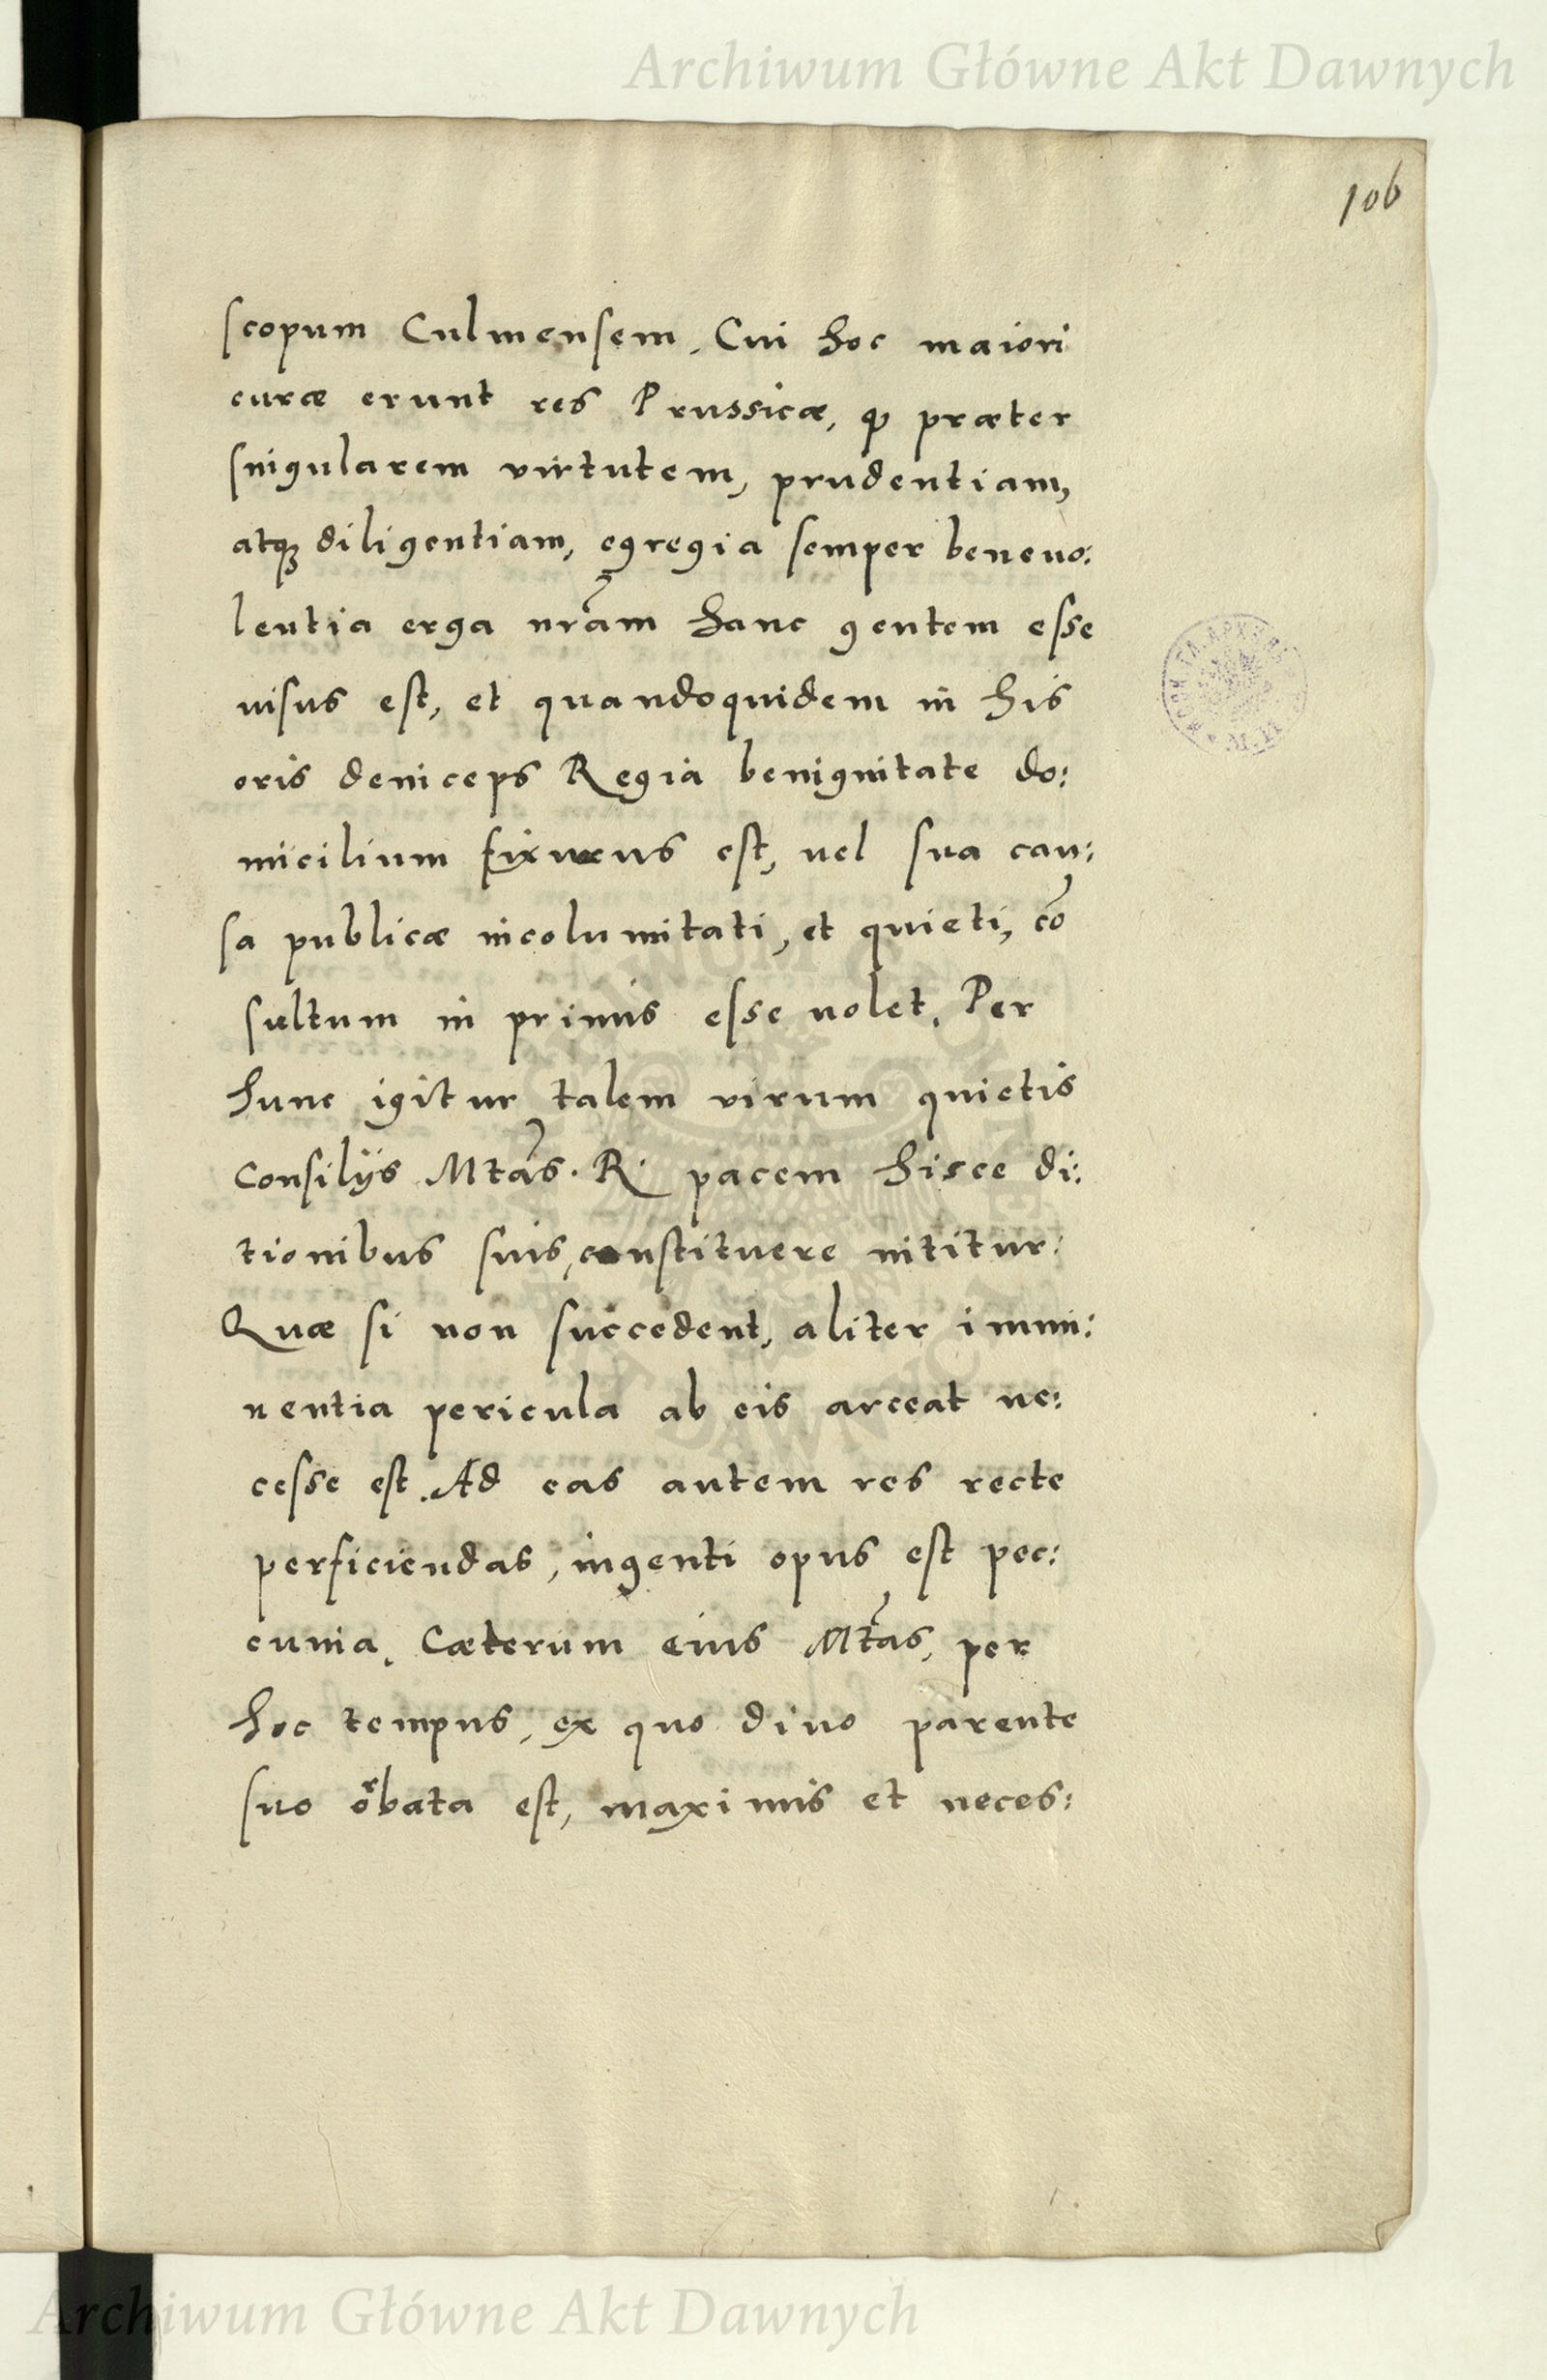 Archiwum Główne Akt Dawnych
106
scopum Culmensem. Cui hoc maiori
curæ erunt res Prussicæ, qȝ præter
singularem virtutem, prudentiam,
atqȝ diligentiam, egregia semper beneuo:
lentia erga nr̃am hanc gentem esse
uisus est, et quandoquidem in his
oris deinceps Regia benignitate do:
micilium fixurus est, uel sua cau:
sa publicæ incolumitati, et quieti, cõ
sultum in primis esse uolet. Per
hunc igitur talem virum quietis
Consilijs Mtãs. R. pacem hisce di:
tionibus suis, constituere nititur:
Quæ si non succedent, aliter immi:
nentia pericula ab eis arceat ne:
cesse est. Ad eas autem res recte
perficiendas, ingenti opus est pec:
cunia. Cæterum eius Mtãs, per
hoc tempus, ex quo diuo parente
suo orbata est, maximis et neces:
Archiwum Główne Akt Dawnych